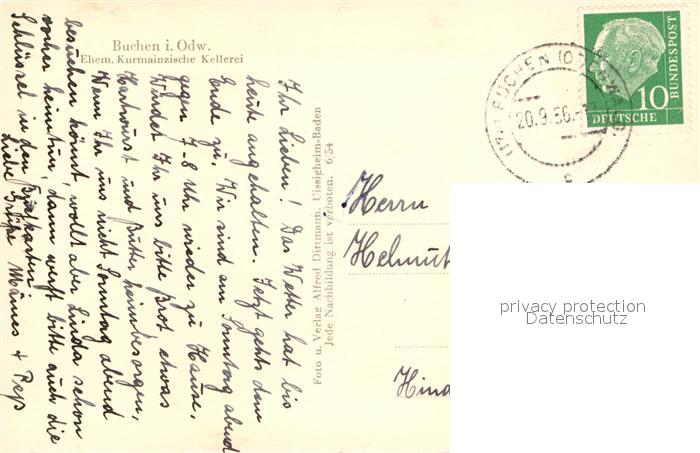 Buchen i. Odw.
Ehem. Kurmainzische Kellerei
Ihr Lieben! Das Wetter hat bis
heute angehalten. Jetzt gehts dem
Ende zu. Wir sind am Sonntag abend
gegen 7-8 Uhr wieder zu Hause.
Würdet Ihr uns bitte Brot, etwas
Hartwurst und Butter heimbesorgen,
Wenn Ihr uns nicht Sonntag abend
besuchen könnt, wollt aber Linda schon
vorher heimtun, dann werft bitte auch die
Schlüssel in den Briefkasten!
Liebe Grüße Mämes + Peps
Foto u. Verlag Alfred Dittmann, Uissigheim-Baden
Jede Nachbildung ist verboten. 6/54
BUCHEN (ODENWALD)
20.9.56.
a
10
DEUTSCHE
BUNDESPOST
Herrn
Helmut
Hind
privacy protection
Datenschutz